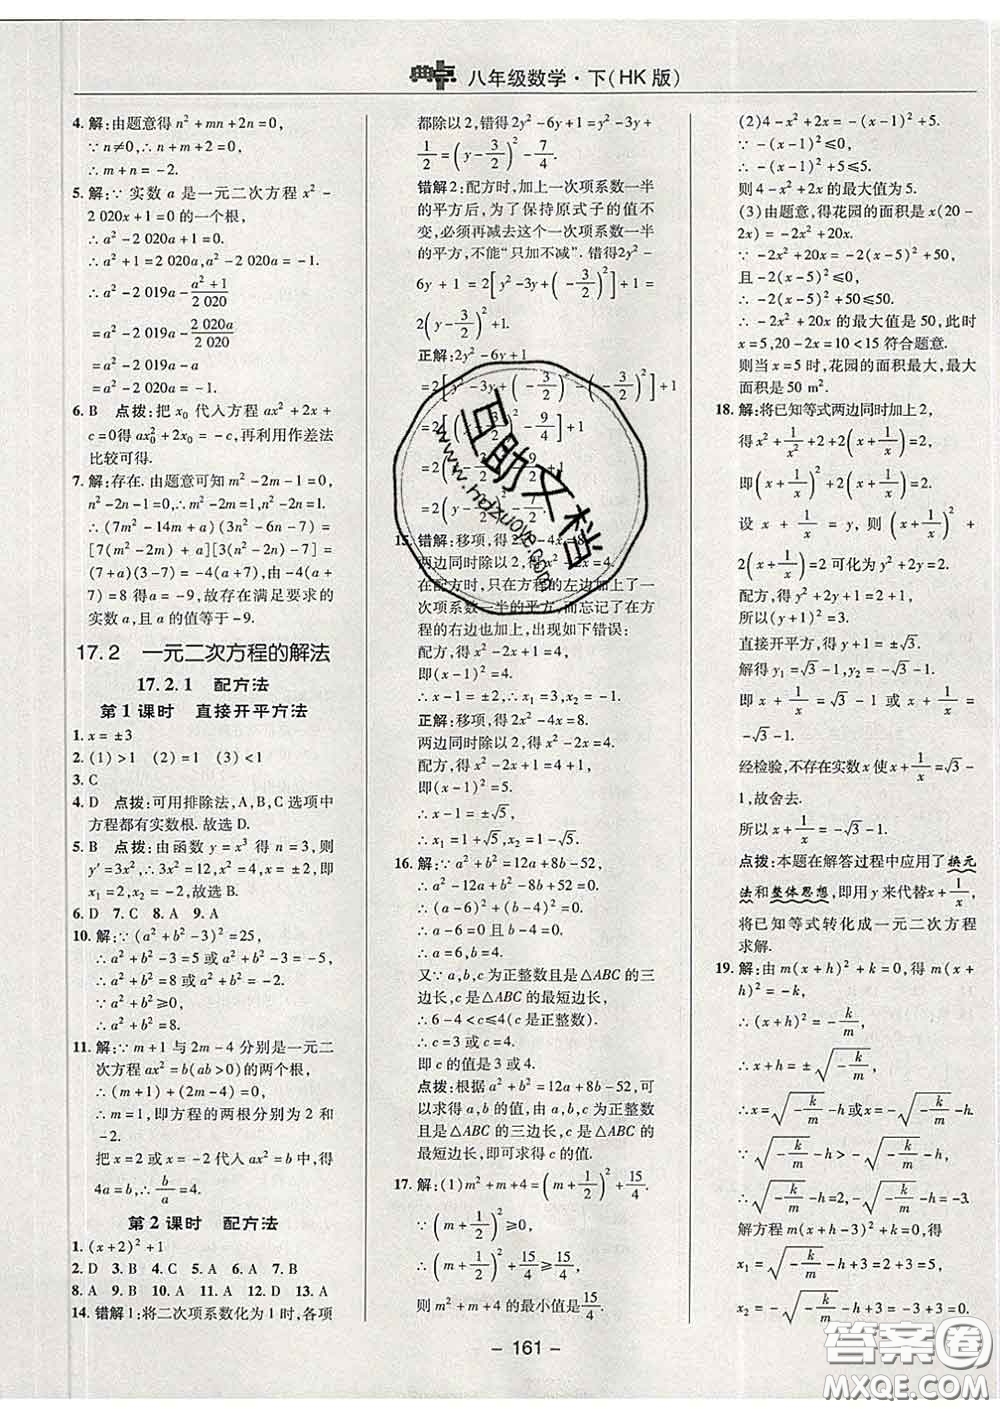 典点 八年级数学·下(HK版)
4. 解:由题意得 n²+mn+2n=0,
∵n≠0,∴n+m+2=0,
∴m+n=-2.
5. 解:∵实数 a 是一元二次方程 x²-
2 020x+1=0 的一个根,
∴a²-2 020a+1=0.
∴a²+1=2 020a,a²-2 020a=-1.
∴a²-2 019a-(a²+1)/2 020
=a²-2 019a-2 020a/2 020
=a²-2 019a-a
=a²-2 020a=-1.
6. B 点拨:把 x₀ 代入方程 ax²+2x+
c=0得 ax₀²+2x₀=-c,再利用作差法
比较可得.
7. 解:存在.由题意可知 m²-2m-1=0,
n²-2n-1=0,∴m²-2m=1,n²-2n=1.
∴(7m²-14m+a)(3n²-6n-7)=
[7(m²-2m)+a][3(n²-2n)-7]=
(7+a)(3-7)=-4(a+7),由-4(a+
7)=8得 a=-9,故存在满足要求的
实数 a,且 a 的值等于-9.
17.2 一元二次方程的解法
17.2.1 配方法
第1课时 直接开平方法
1. x=±3
2. (1)>1 (2)1 (3)<1
3. C
4. D 点拨:可用排除法,A、B、C选项中
方程都有实数根.故选D.
5. B 点拨:由函数 y=x³ 得 n=3,则
y′=3x²,∴3x²=12,x²=4,即
x₁=2,x₂=-2,故选B.
6. D 7. C 8. A 9. A
10. 解:∵(a²+b²-3)²=25,
∴a²+b²-3=5或a²+b²-3=-5.
∴a²+b²=8或a²+b²=-2.
∵a²+b²≥0,
∴a²+b²=8.
11. 解:∵m+1 与 2m-4 分别是一元二
次方程 ax²=b(ab>0)的两个根,
∴(m+1)+(2m-4)=0,
∴m=1,即方程的两根分别为2和
-2.
把 x=2 或 x=-2 代入 ax²=b 中,得
4a=b,∴b/a=4.
第2课时 配方法
1. (x+2)²+1
2. D 3. B 4. C 5. A 6. A 7. B
8. A 9. B 10. C 11. A 12. B 13. A
14. 错解1:将二次项系数化为1时,各项
都除以2,错得2y²-6y+1=y²-3y+
1/2=(y-3/2)²-7/4.
错解2:配方时,加上一次项系数一半
的平方后,为了保持原式子的值不
变,必须再减去这个一次项系数一半
的平方,不能“只加不减”.错得2y²-
6y+1=2[y²-3y+(-3/2)²]+1=
2(y-3/2)²+1.
正解:2y²-6y+1
=2[y²-3y+(-3/2)²-(-3/2)²]+1
15. 错解:移项,得2x²-4x=8.
两边同时除以2,得x²-2x=4.
在配方时,只在方程的左边加上了一
次项系数一半的平方,而忘记了在方
程的右边也加上,出现如下错误:
配方,得x²-2x+1=4,
即(x-1)²=4.
∴x-1=±2,∴x₁=3,x₂=-1.
正解:移项,得2x²-4x=8.
两边同时除以2,得x²-2x=4.
配方,得x²-2x+1=4+1,
即(x-1)²=5.
∴x-1=±√5,
∴x₁=1+√5,x₂=1-√5.
16. 解:∵a²+b²=12a+8b-52,
∴a²-12a+b²-8b+52=0.
∴(a-6)²+(b-4)²=0.
∴a-6=0且b-4=0.
∴a=6,b=4.
又∵a,b,c为正整数且是△ABC的三
边长,c是△ABC的最短边长,
∴6-4<c≤4(c是正整数).
∴c=3或c=4.
即c的值是3或4.
点拨:根据a²+b²=12a+8b-52,可
以求得a,b的值,由a,b,c为正整数
且是△ABC的三边长,c是△ABC的
最短边长,即可求得c的值.
17. 解:(1)m²+m+4=(m+1/2)²+15/4.
∵(m+1/2)²≥0,
∴(m+1/2)²+15/4≥15/4.
则m²+m+4的最小值是15/4.
(2)4-x²+2x=-(x-1)²+5.
∵-(x-1)²≤0,
∴-(x-1)²+5≤5.
则4-x²+2x的最大值为5.
(3)由题意,得花园的面积是x(20-
2x)=-2x²+20x.
∵-2x²+20x=-2(x-5)²+50,
且-2(x-5)²≤0,
∴-2(x-5)²+50≤50.
∴-2x²+20x的最大值是50,此时
x=5,20-2x=10<15符合题意.
则当x=5时,花园的面积最大,最大
面积是50 m².
18. 解:将已知等式两边同时加上2,
得x²+1/x²+2+2(x+1/x)=2,
即(x+1/x)²+2(x+1/x)=2.
设x+1/x=y,则(x+1/x)²+
2(x+1/x)=2可化为y²+2y=2.
配方,得y²+2y+1=2+1,
所以(y+1)²=3.
直接开平方,得y+1=±√3.
解得y₁=√3-1,y₂=-√3-1.
即x+1/x=√3-1或x+1/x=
-√3-1.
经检验,不存在实数x使x+1/x=√3-
1,故舍去.
所以x+1/x=-√3-1.
点拨:本题在解答过程中应用了换元
法和整体思想,即用y来代替x+1/x,
将已知等式转化成一元二次方程
求解.
19. 解:由m(x+h)²+k=0,得m(x+
h)²=-k,
∴(x+h)²=-k/m.
∴x+h=±√(-k/m),
∴x=√(-k/m)-h或x=-√(-k/m)-h.
∵√(-k/m)-h>-√(-k/m)-h,
∴√(-k/m)-h=2,-√(-k/m)-h=-3.
解方程m(x+h-3)²+k=0,得
x₁=√(-k/m)-h+3=2+3=5,
x₂=-√(-k/m)-h+3=-3+3=0.
- 161 -
互助文档
www.hdzuoye.com
答案圈
MXQE.COM